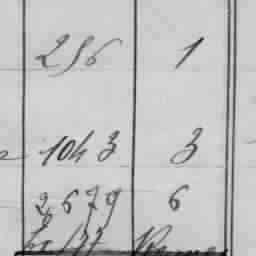 256 1
1043 3
2679 6